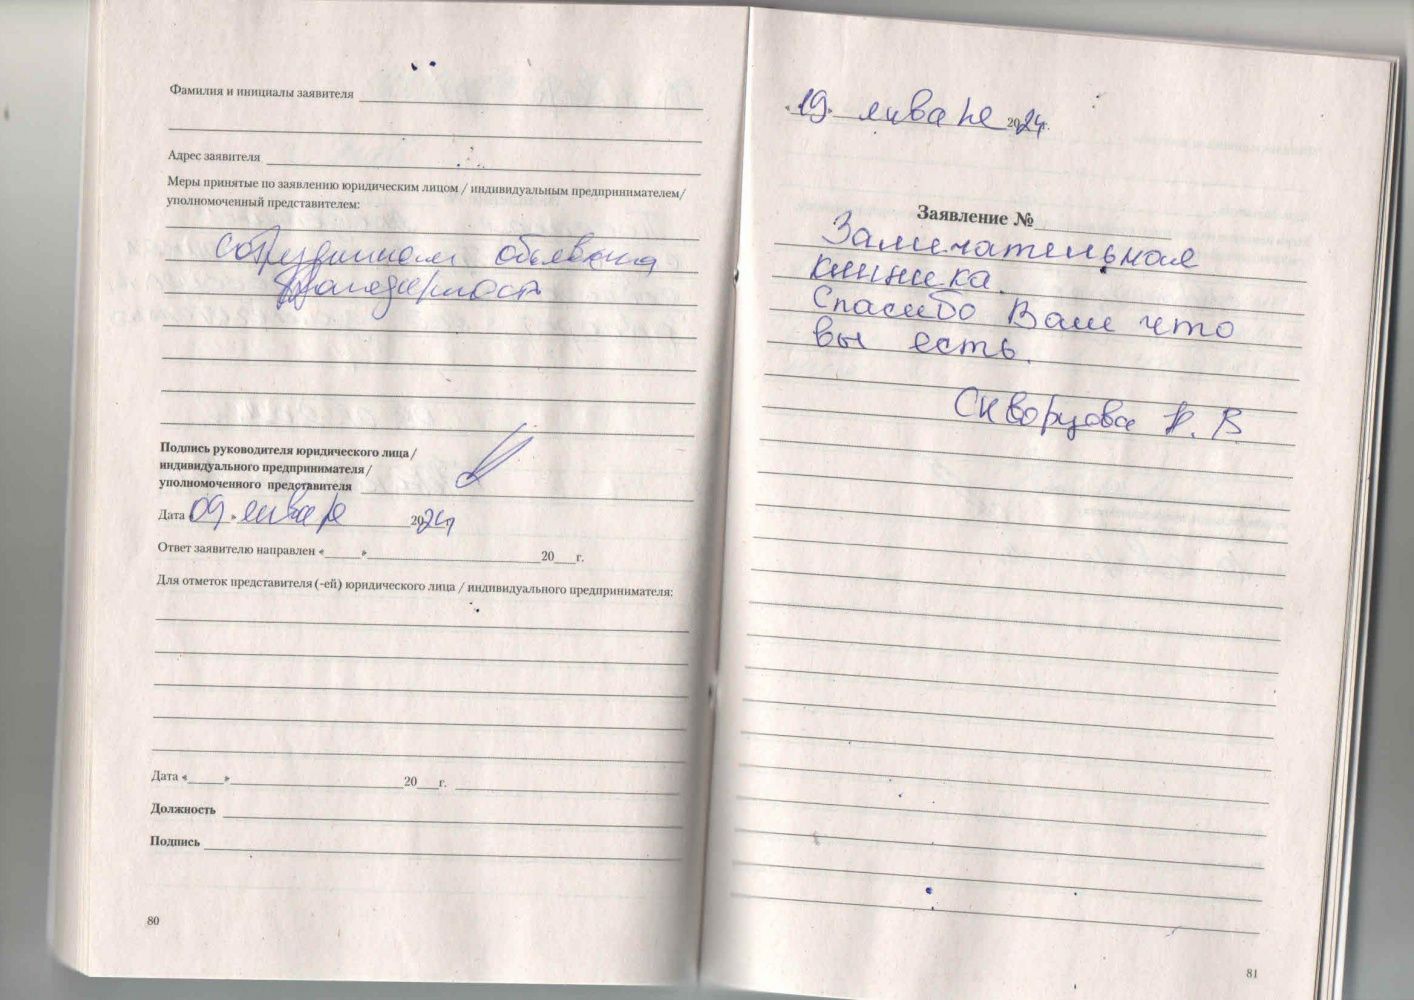 Фамилия и инициалы заявителя
Адрес заявителя
Меры принятые по заявлению юридическим лицом / индивидуальным предпринимателем/
уполномоченный представителем:
сотрудникам объявлена
благодарность
Подпись руководителя юридического лица /
индивидуального предпринимателя /
уполномоченного представителя
Дата «09» января 2024
Ответ заявителю направлен «____»____ 20__г.
Для отметок представителя (-ей) юридического лица / индивидуального предпринимателя:
Дата «____»____ 20__г.
Должность
Подпись
80
«19» января 2024г.
Заявление №
Замечательная
клиника.
Спасибо Вам что
вы есть.
Скворцова Н. В
81